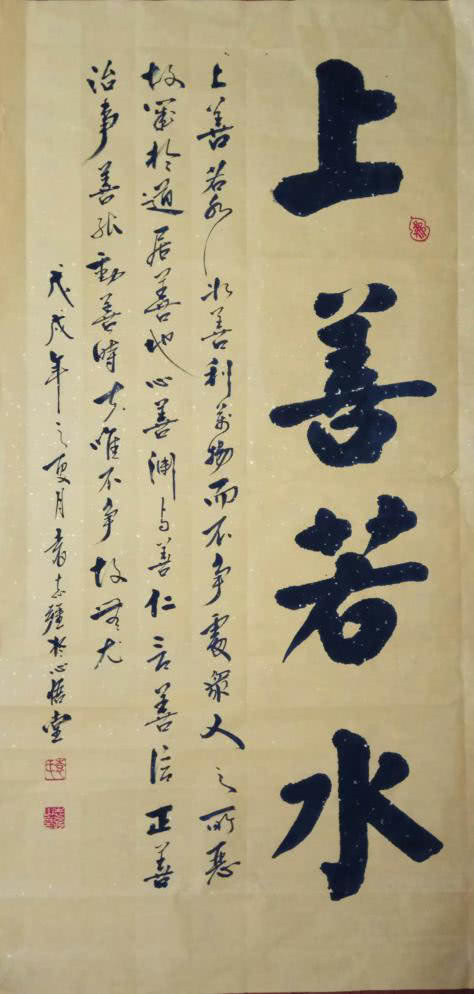 上善若水
上善若水水善利万物而不争处众人之所恶
故几於道居善地心善渊与善仁言善信正善
治事善能动善时夫唯不争故无尤
戊戌年之夏月袁志疆於心悟堂